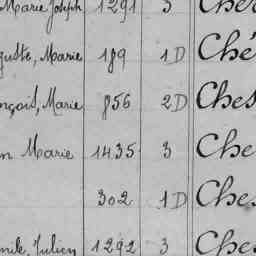 Marie Joseph 1291 3
Marie 189 1D Ché
Marie 856 2D Ches
Marie 1435 3 Che
302 1D Ches
Julien 1292 3 Ches